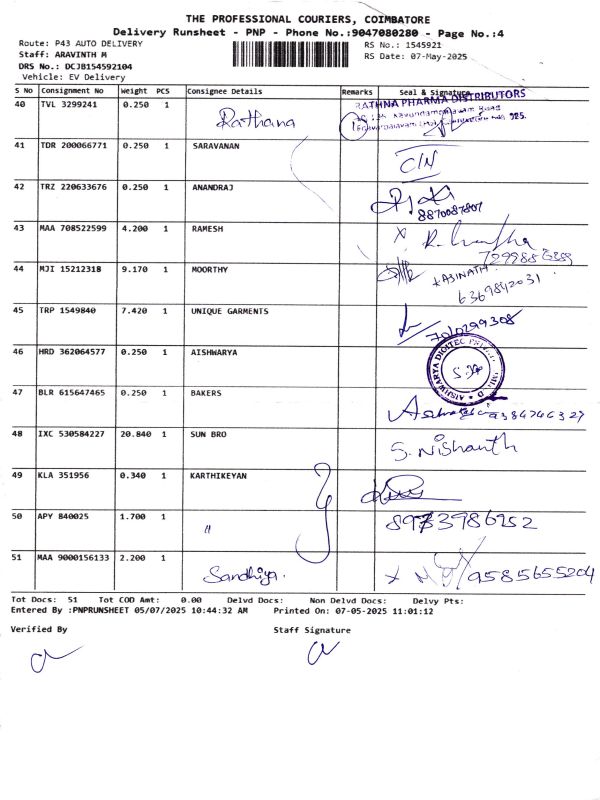 THE PROFESSIONAL COURIERS, COIMBATORE
Delivery Runsheet - PNP - Phone No.:9047080280 - Page No.:4
Route: P43 AUTO DELIVERY
RS No.: 1545921
Staff: ARAVINTH M
RS Date: 07-May-2025
DRS No.: DCJB154592104
Vehicle: EV Delivery
S No Consignment No Weight PCS Consignee Details Remarks Seal & Signature
RATHNA PHARMA DISTRIBUTORS
40 TVL 3299241 0.250 1 Rathana
41 TDR 200066771 0.250 1 SARAVANAN C/N
42 TRZ 220633676 0.250 1 ANANDRAJ
8870087807
43 MAA 708522599 4.200 1 RAMESH
44 MJI 15212318 9.170 1 MOORTHY KASINATH
6369842031
45 TRP 1549840 7.420 1 UNIQUE GARMENTS
7010299308
46 HRD 362064577 0.250 1 AISHWARYA
AISHWARYA DIGITEC
47 BLR 615647465 0.250 1 BAKERS
48 IXC 530584227 20.840 1 SUN BRO S. Nishanth
49 KLA 351956 0.340 1 KARTHIKEYAN
50 APY 840025 1.700 1 〃
51 MAA 9000156133 2.200 1 Sandhiya. 9585655204
Tot Docs: 51 Tot COD Amt: 0.00 Delvd Docs: Non Delvd Docs: Delvy Pts:
Entered By :PNPRUNSHEET 05/07/2025 10:44:32 AM Printed On: 07-05-2025 11:01:12
Verified By Staff Signature